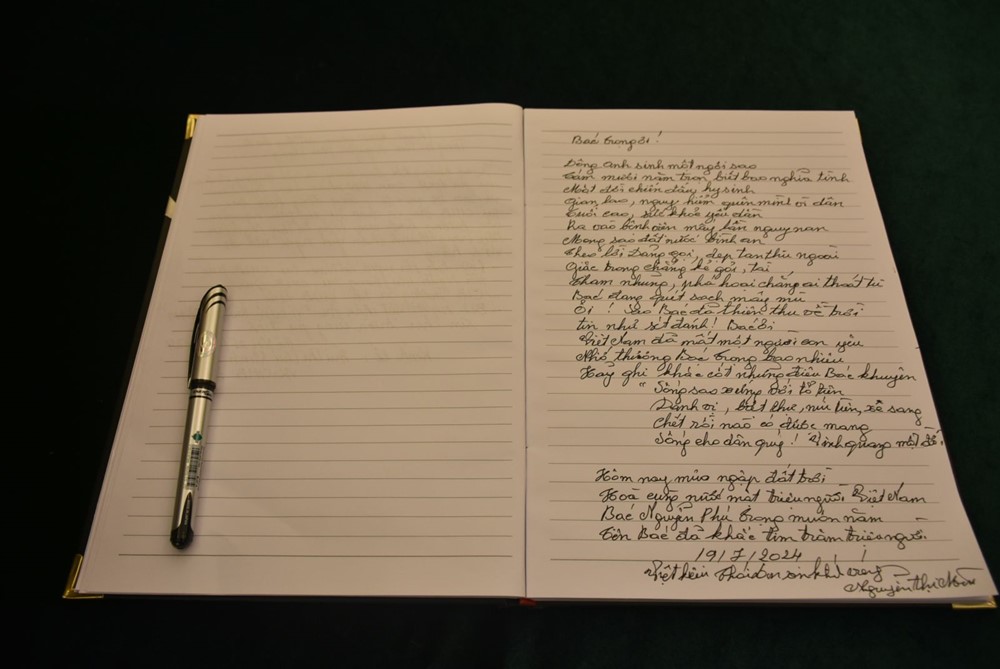 Bác Trọng ơi!
Đông Anh sinh một ngôi sao
Tám mươi năm tròn, biết bao nghĩa tình
Một đời chiến đấu hy sinh
Gian lao, nguy hiểm quên mình vì dân
Tuổi cao, sức khỏe yếu dần
Ra vào bệnh viện mấy lần nguy nan
Mong sao đất nước bình an
Theo lời Đảng gọi, dẹp tan thù ngoài
Giặc trong chẳng kể gái, tai
Tham nhũng, phá hoại chẳng ai thoát tù
Bác đang quét sạch mây mù
Ôi! Sao Bác đã thiên thu về trời
tin như sét đánh! Bác ơi
Việt Nam đã mất một người con yêu
Nhớ thương Bác Trọng bao nhiêu
Hãy ghi khắc cốt những điều Bác khuyên
"Sống sao xứng với tổ tiên
Danh vị, biệt thự, núi tiền, xe sang
Chết rồi nào có được mang
Sống cho dân quý! Vinh quang một đời
Hôm nay mưa ngập đất trời
Hoà cùng nước mắt triệu người Việt Nam
Bác Nguyễn Phú Trọng muôn năm
Tên Bác đã khắc tim trăm triệu người!
19/7/2024
Việt kiều Thái Lan sinh
Nguyễn Thị